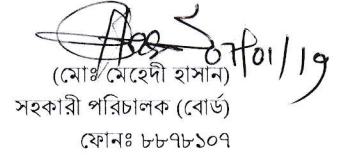 ০৭/০১/১৯
(মোঃ মেহেদী হাসান)
সহকারী পরিচালক (বোর্ড)
ফোনঃ ৮৮৭৮১০৭